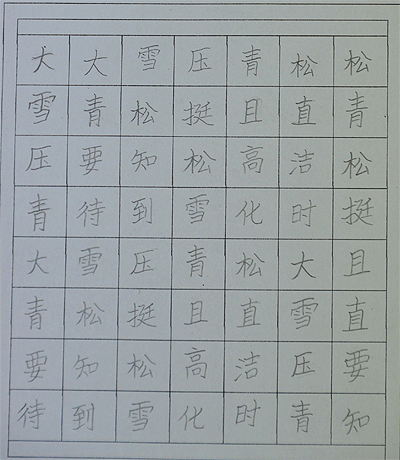 大大雪压青松松
雪青松挺且直青
压要知松高洁松
青待到雪化时挺
大雪压青松大且
青松挺且直雪直
要知松高洁压要
待到雪化时青知